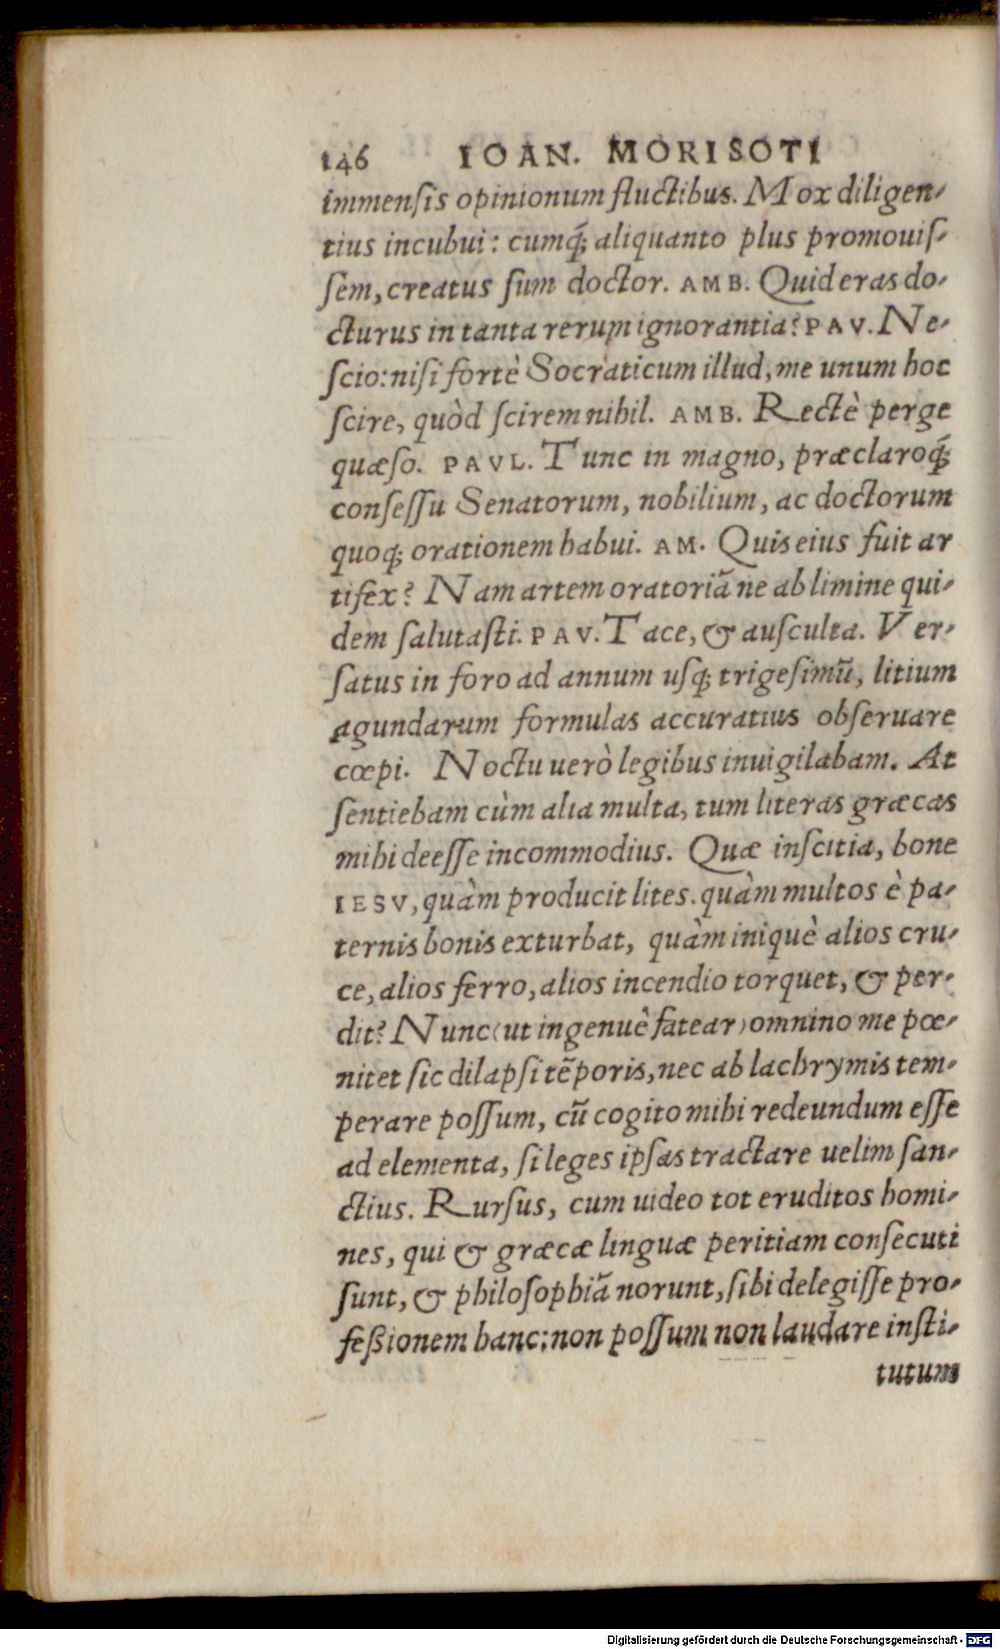 146 IOAN. MORISOTI
immensis opinionum fluctibus. Mox diligen-
tius incubui: cumq́; aliquanto plus promouis-
sem, creatus sum doctor. AMB. Quid eras do-
cturus in tanta rerum ignorantia? PAV. Ne-
scio: nisi fortè Socraticum illud, me unum hoc
scire, quòd scirem nihil. AMB. Rectè perge
quæso. PAVL. Tunc in magno, præclaroq́;
consessu Senatorum, nobilium, ac doctorum
quoq; orationem habui. AM. Quis eius fuit ar
tifex? Nam artem oratoriã ne ab limine qui-
dem salutasti. PAV. Tace, & ausculta. Ver-
satus in foro ad annum usq; trigesimũ, litium
agundarum formulas accuratius obseruare
cœpi. Noctu uerò legibus inuigilabam. At
sentiebam cùm alia multa, tum literas græcas
mihi deesse incommodius. Quæ inscitia, bone
IESV, quàm producit lites. quàm multos è pa-
ternis bonis exturbat, quàm iniquè alios cru-
ce, alios ferro, alios incendio torquet, & per-
dit? Nunc (ut ingenuè fatear) omnino me pœ-
nitet sic dilapsi tẽporis, nec ab lachrymis tem-
perare possum, cũ cogito mihi redeundum esse
ad elementa, si leges ipsas tractare uelim san-
ctius. Rursus, cum uideo tot eruditos homi-
nes, qui & græcæ linguæ peritiam consecuti
sunt, & philosophiã norunt, sibi delegisse pro-
feßionem hanc: non possum non laudare insti-
tutum
Digitalisierung gefördert durch die Deutsche Forschungsgemeinschaft - DFG